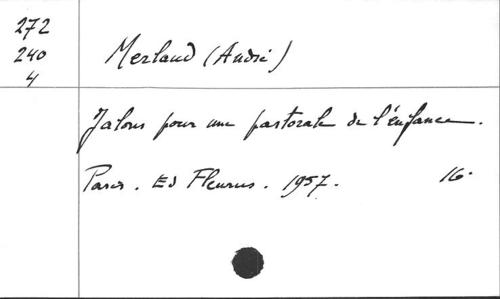 272
240
4
Merlaud (André)
Jalons pour une pastorale de l'enfance.
Paris. Ed Fleurus. 1957. 16.